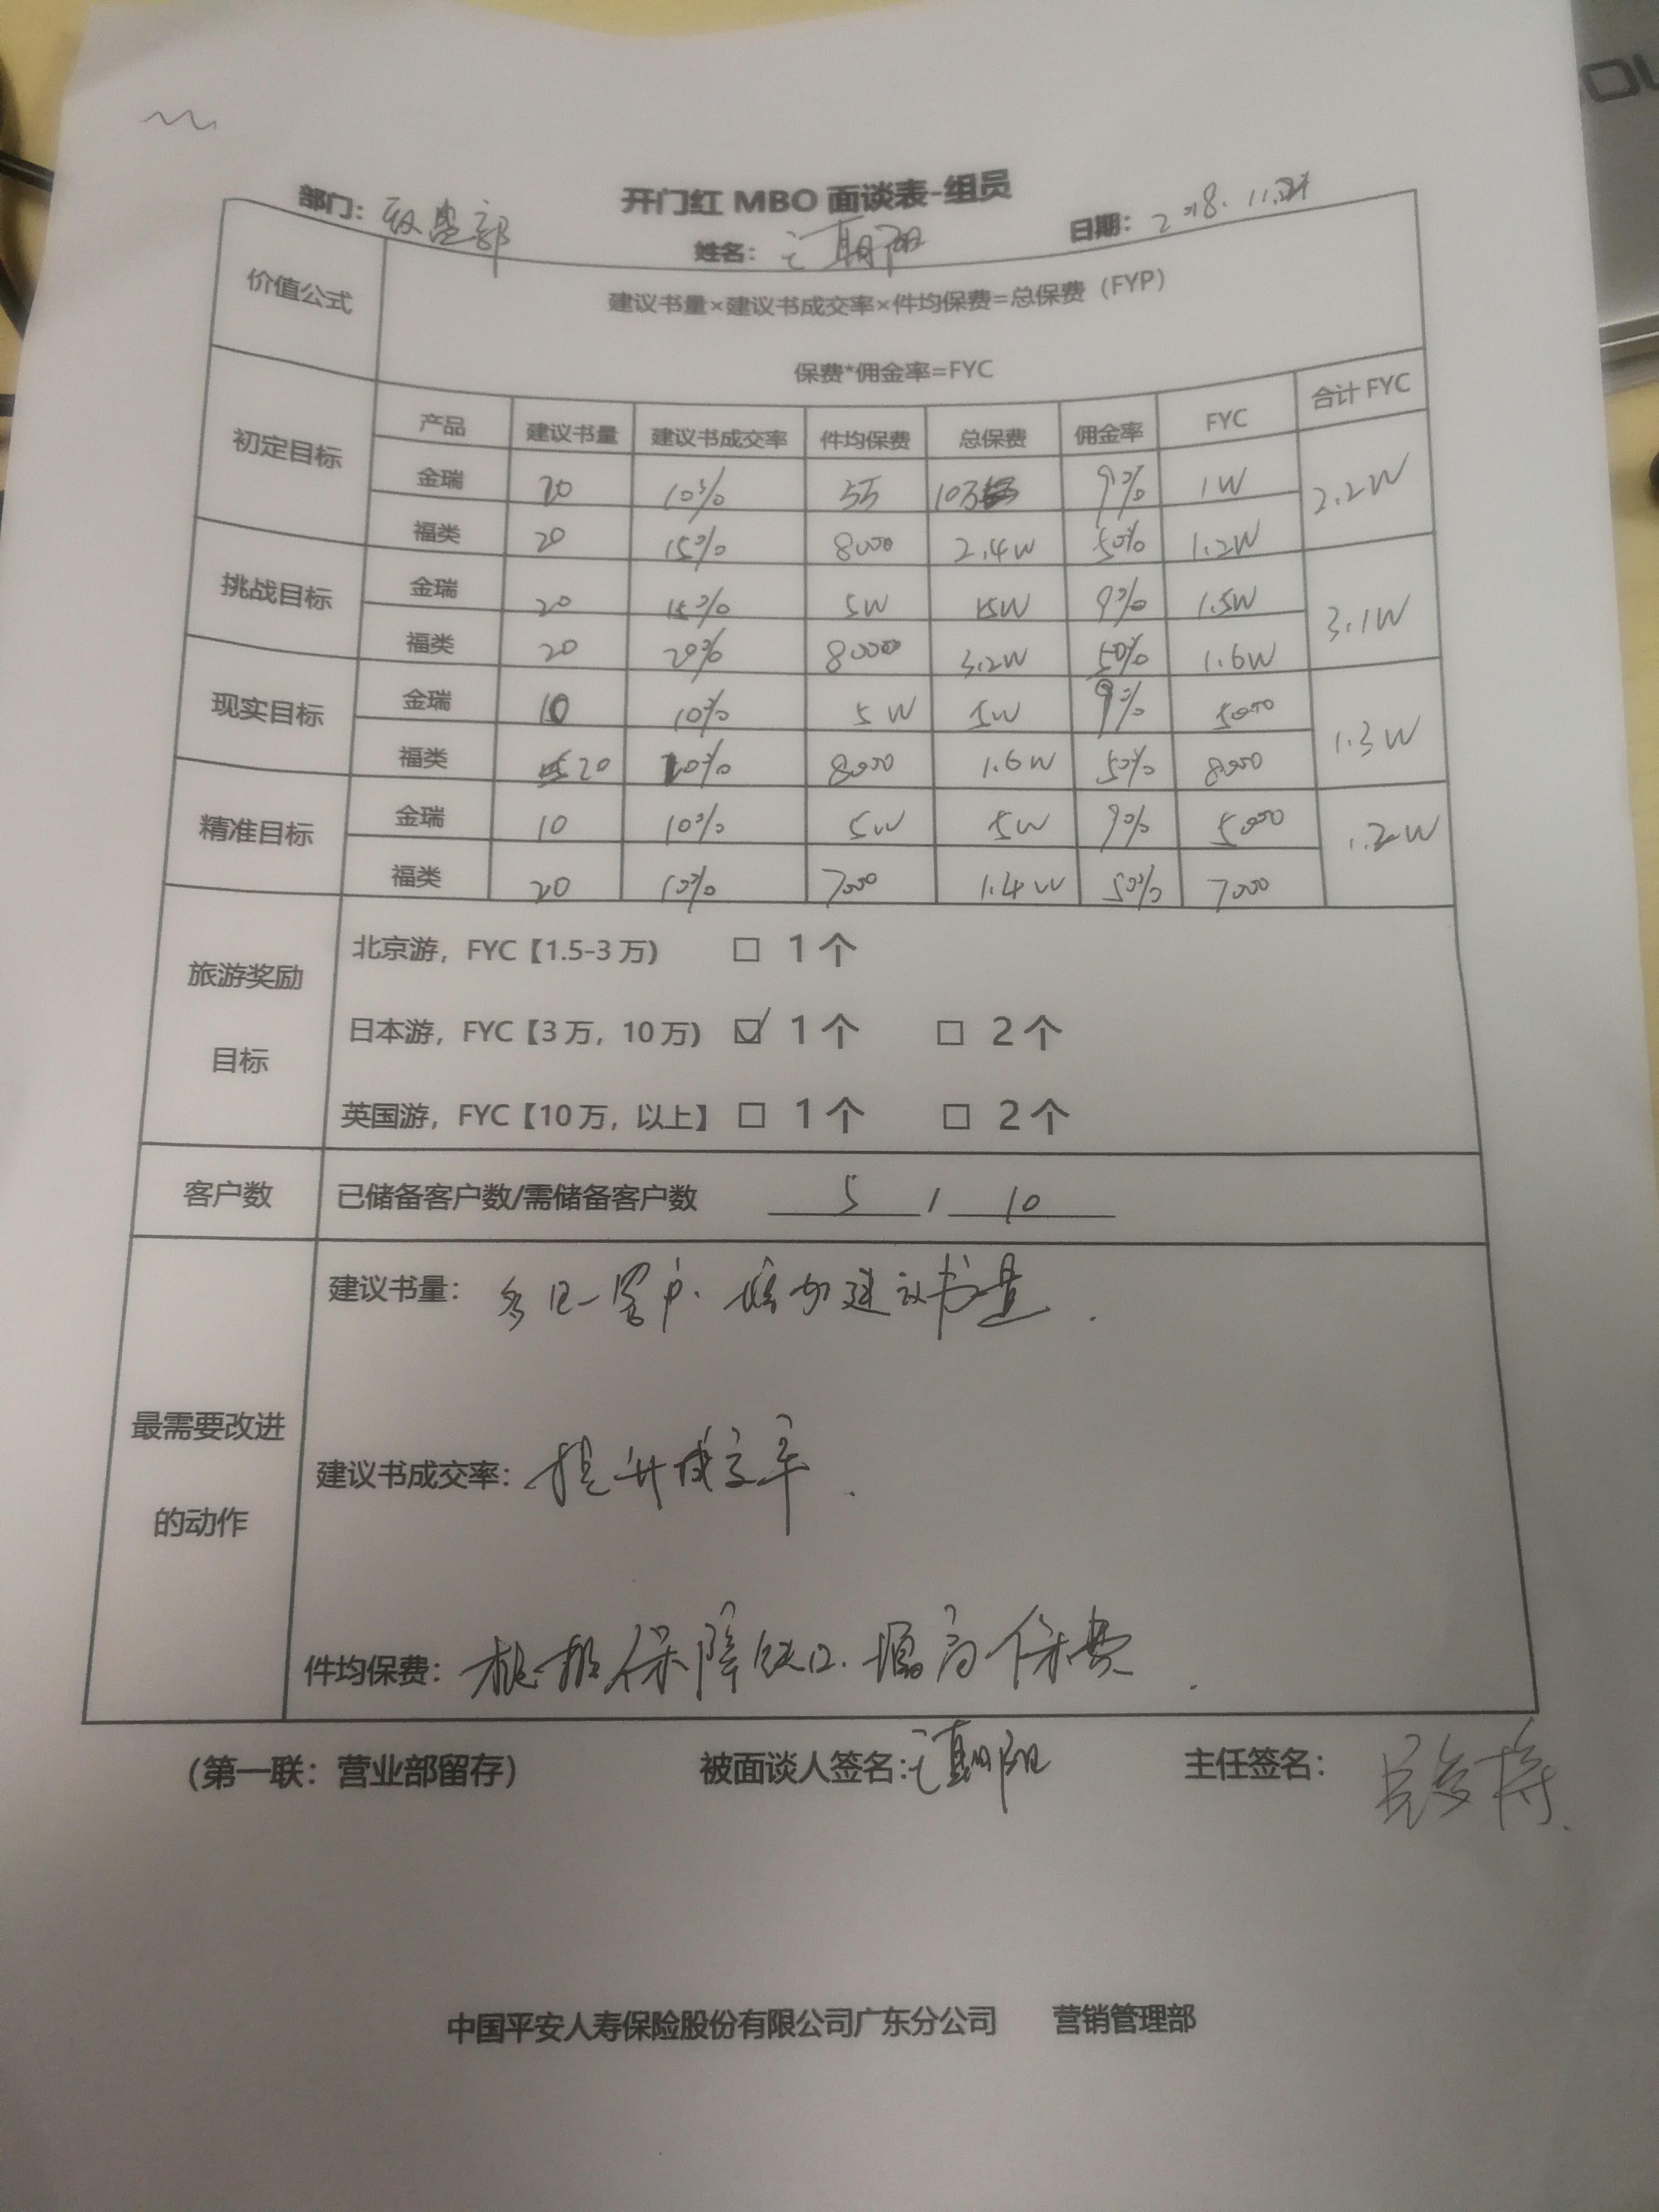 开门红 MBO 面谈表-组员
部门： 姓名： 日期：2018.11.
价值公式 建议书量×建议书成交率×件均保费=总保费（FYP）
保费*佣金率=FYC
初定目标 产品 建议书量 建议书成交率 件均保费 总保费 佣金率 FYC 合计 FYC
金瑞 20 10% 5万 10万 9% 1W 2.2W
福类 20 15% 8000 2.4W 50% 1.2W
挑战目标 金瑞 20 15% 5W 15W 9% 1.5W 3.1W
福类 20 20% 80000 3.2W 50% 1.6W
现实目标 金瑞 10 10% 5W 5W 9% 5000 1.3W
福类 20 10% 8000 1.6W 50% 8000
精准目标 金瑞 10 10% 5W 5W 9% 5000 1.2W
福类 20 10% 7000 1.4W 50% 7000
旅游奖励
目标
北京游，FYC【1.5-3 万） □ 1 个
日本游，FYC【3 万，10 万） ☑ 1 个 □ 2 个
英国游，FYC【10 万，以上】 □ 1 个 □ 2 个
客户数 已储备客户数/需储备客户数 5 / 10
最需要改进
的动作
建议书量： 客户. 增加建议书量.
建议书成交率：提升成交率.
件均保费：根据保障缺口. 提高保费.
（第一联：营业部留存） 被面谈人签名： 主任签名：
中国平安人寿保险股份有限公司广东分公司 营销管理部